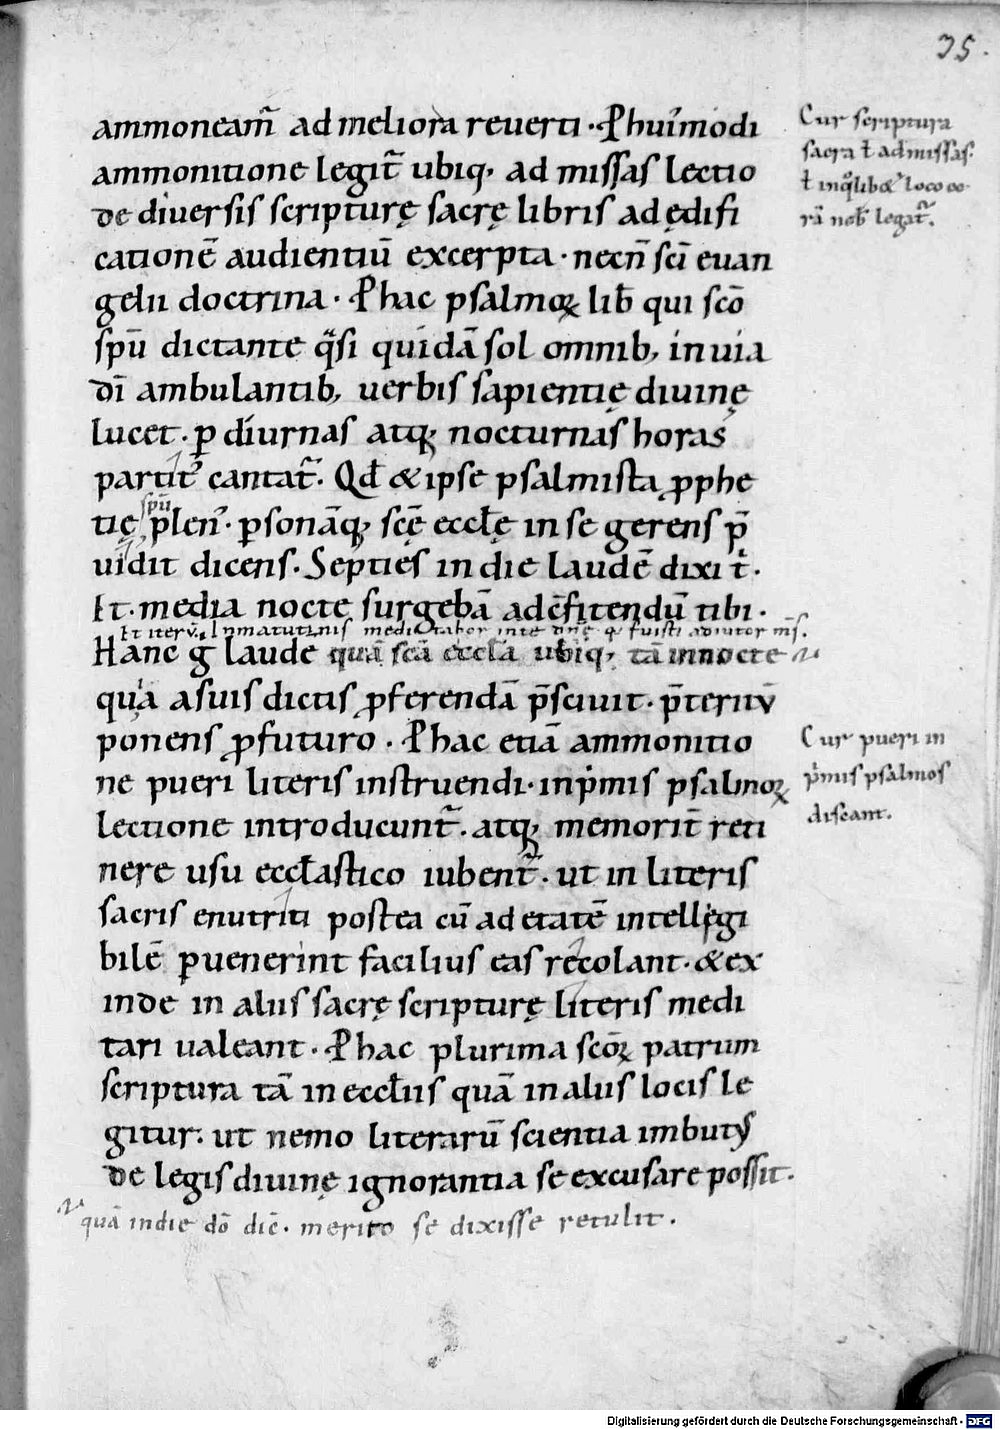 35.
ammoneam̃ ad meliora reverti · P huĩmodi
ammonitione legit᷑ ubiq; ad missas lectio
de diversis scripturę sacrę libris ad ędifi
cationē audientiū excerpta · necn̄ sc̄i euan
gelii doctrina · P hac psalmoꝝ lib̄ qui sc̄o
sp̄u dictante q̃si quidā sol omnib; in uia
dī ambulantib; uerbis sapientię divinę
lucet · ꝑ diurnas atq; nocturnas horas
partit᷑ cantat᷑. Qd̄ & ipse psalmista ꝓphe
tię sp̄u plen᷒ · ꝑsonāq; sc̄ę eccl̄ę in se gerens p̄
vidit dicens. Septies in die laudē dixi t̄.
Et · media nocte surgebā ad c̄fitendū tibi ·
Et iterū. In matutinis meditabor in te dn̄e q̇ fuisti adiutor m̄s.
Hanc g̊ laude quā sc̄a eccl̄a ubiq; tā in nocte
quia a suis dictis ꝓferendā p̄scivit · p̄teritū
ponens ꝓ futuro · P hac etiā ammonitio
ne pueri literis instruendi · in p̍mis psalmoꝝ
lectione introducunt᷑. atq; memorit̄ reti
nere usu eccl̄astico iubent᷑ · ut in literis
sacris enutriti postea cū ad etatē intellegi
bilē ꝑuenerint facilius eas recolant · & ex
inde in aliis sacrę scripturę literis medi
tari ualeant · P hac plurima sc̄oꝝ patrum
scriptura tā in eccl̄iis quā in aliis locis le
gitur. ut nemo literarū scientia imbut᷒
de legis divinę ignorantia se excusare possit.
quā in die dō dic̄. merito se dixisse retulit.
Cur scriptura
sacra t̄ ad missas.
t̄ in q̊lib& loco co
rā nob̄ legat᷑.
Cur pueri in
p̍mis psalmos
discant.
Digitalisierung gefördert durch die Deutsche Forschungsgemeinschaft - DFG